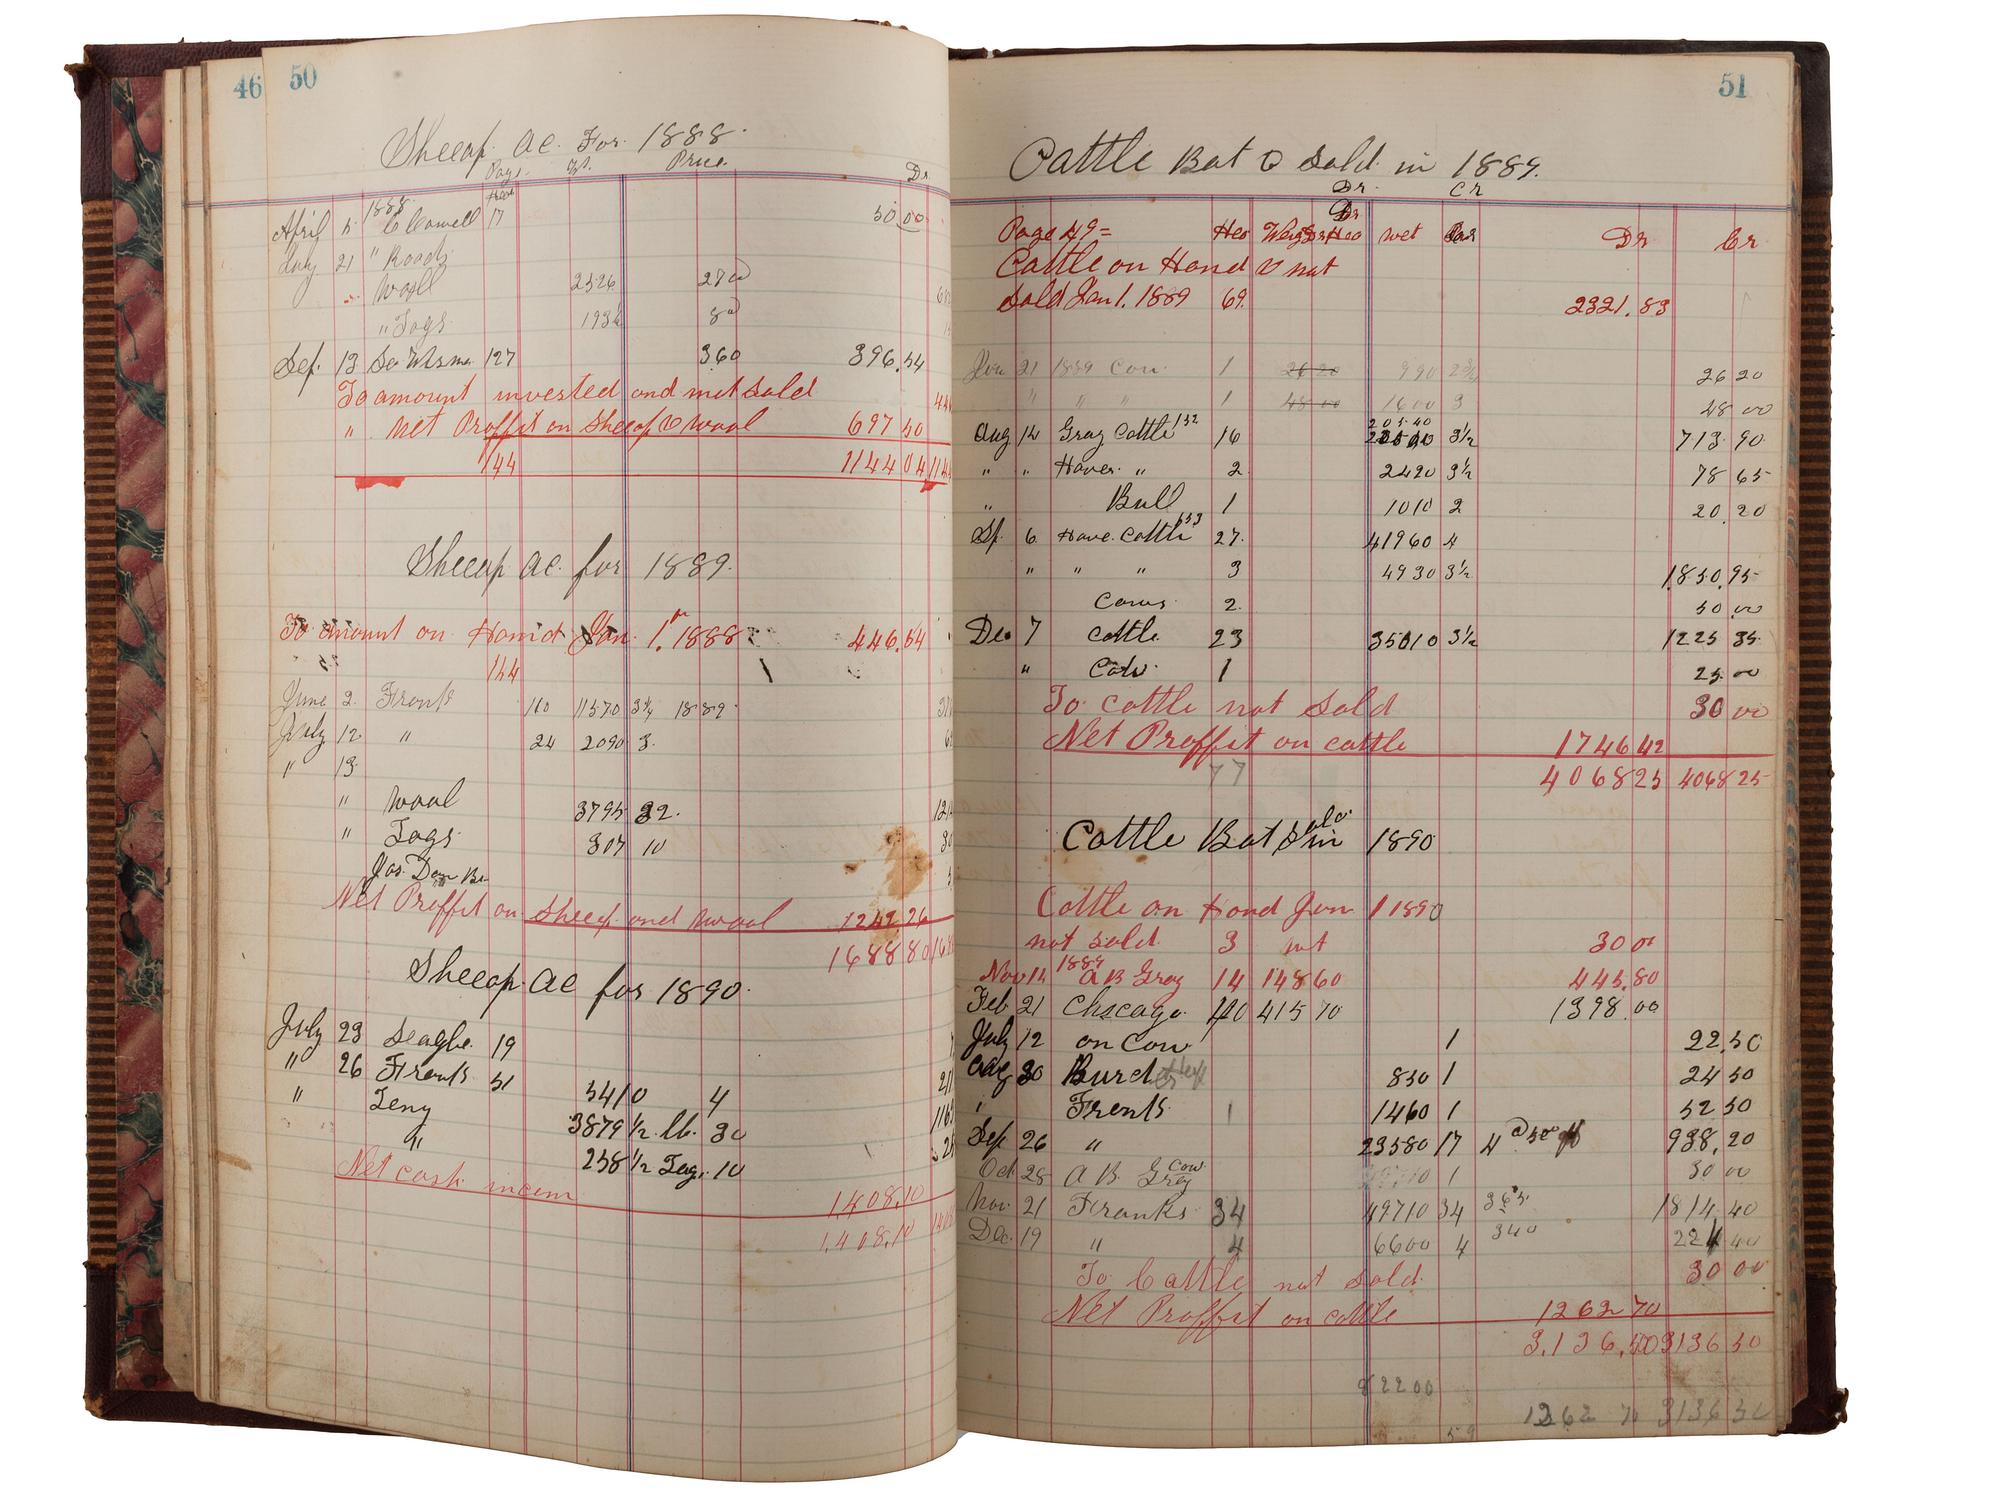 46 50
Sheeap. ac. For. 1888.
Page. Wt. Price. Dr.
Head
1888.
April 5 C Cowell 17 50 00
July 21 "
" Wool 2526 27
" Tags. 193 8
Sep. 13 127 360 396.54
To amount invested and not Sold
" Net Proffit on Sheeap & wool 697 50
144 1144 04
Sheeap ac. for 1889.
To amount on Hand Jan. 1. 1888 446.54
144
June 2. Frank 110 11570 3¼ 1889.
July 12. " 24 2090 3.
" 13.
" Wool 3795 32.
" Tags 307 10
Jas. Dan
Net Proffit on Sheeap and Wool 1242 26
1688 80
Sheeap. ac for 1890.
July 23 Seagle. 19
" 26 Frank 51 5410 4
" 3879 ½ lb. 30
" 258 ½ Tag. 10
Net cash incom 1,408,10
1,408,10
51
Cattle Bat & Sold in 1889.
Dr. Cr
Page 49= Hed Weight wet Dr Cr
Cattle on Hand & not
sold Jan 1. 1889 69. 2321.83
Jan 21 1889 Cow 1 26 20 990 2¾ 26 20
" " " 1 48 00 1600 3 48 00
205.40
Aug 14 Gray Cattle 152 16 3½ 713 90
" " Haves. " 2 2420 3½ 78 65
" Bull 1 1010 2 20.20
Sp. 6. Have. Cattle 153 27. 41960 4
" " " 3 4930 3½ 1850.95
Cows 2. 50 00
De. 7 Cattle 23 35010 3½ 1225 35
" Cow 1 25 00
To cattle not Sold 30 00
Net Proffit on cattle 1746 42
77 4068 25 4068 25
Cattle Bat Sold in 1890
Cattle on Hand Jan 1 1890
not sold. 3 30 00
1889
Nov 14 A B Gray 14 14860 445.80
Feb 21 Chicago. 40 415 70 1398.00
July 12 on Cow 1 22.50
Aug 30 Burd 830 1 24 50
" Frank 1 1460 1 52 50
Sep 26 " 23580 17 4 938,20
Oct 28 A B Gray Cow. 1 30 00
Nov. 21 Franks 34 49710 34 365 1814.40
Dec. 19 " 4 6600 4 340 224 40
To Cattle not Sold. 30 00
Net Proffit on cattle 1262 70
3.136,50 3136 50
82200
1262 70 3136 50
59